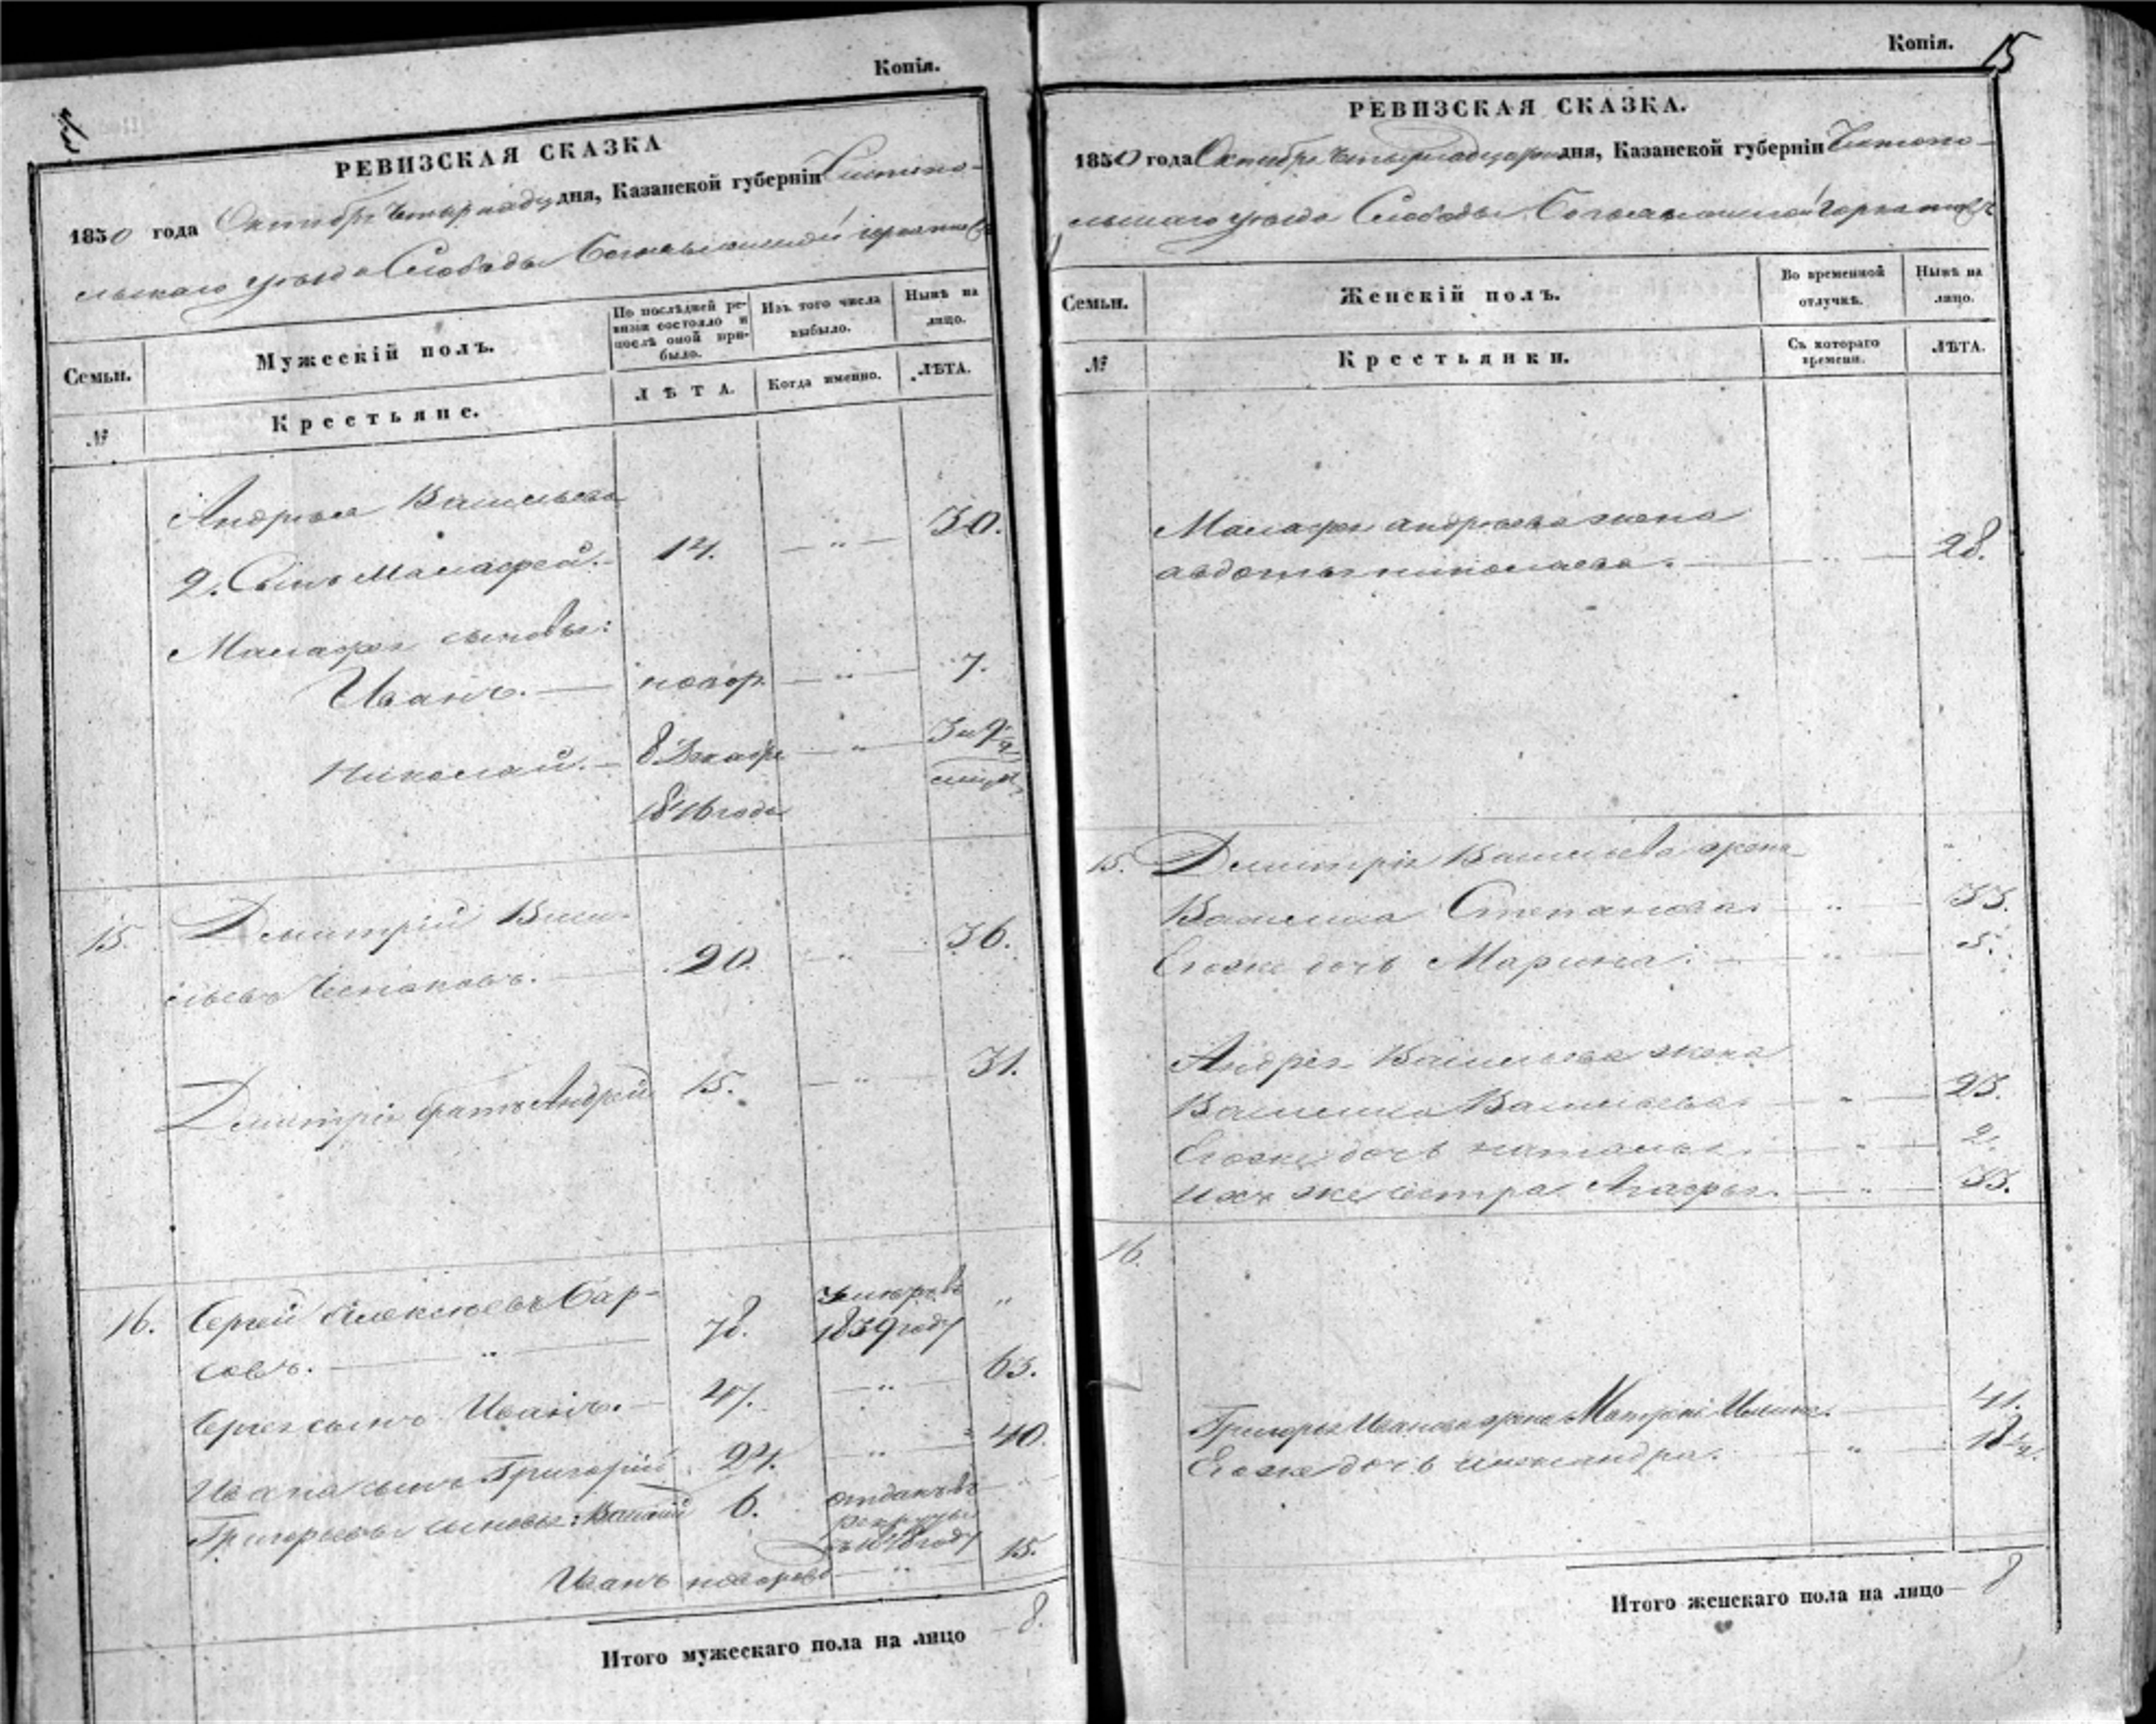 Копія.
РЕВИЗСКАЯ СКАЗКА
1850 года Октября дня, Казанской губерніи Чистопо-
льскаго уѣзда Слободы
Семьи.
Мужескій полъ.
По послѣдней ре-
визіи состояло и
послѣ оной при-
было.
Изъ того числа
выбыло.
Нынѣ на
лицо.
№
Крестьяне.
ЛѢТА.
Когда именно.
ЛѢТА.
Андрея Васильева
2. Сынъ Малафей. 14. — „ — 30.
Малафея сыновья:
Иванъ. — новор. — „ — 7.
Николай. — 8 Декабря — „ — 3 и 9/12
1846 года
15. Дмитрій Васи-
льевъ — 20. — „ — 36.
Дмитрія братъ Андрей 15. — „ — 31.
16. Сергей Алексѣевъ Бар-
совъ. — „ — 78. умеръ въ 1839 году „
Сергея сынъ Иванъ. — 47. — „ — 63.
Ивана сынъ Григорій 24. — „ — 40.
Григорьевы сыновья: Василій 6. отданъ въ
рекруты
въ 1848 году
Иванъ новорож — „ — 15.
Итого мужескаго пола на лицо — 8.
Копія. 15
РЕВИЗСКАЯ СКАЗКА.
1850 года Октября дня, Казанской губерніи Чистопо-
льскаго уѣзда Слободы
Семьи.
Женскій полъ.
Во временной
отлучкѣ.
Нынѣ на
лицо.
№
Крестьянки.
Съ котораго
времени.
ЛѢТА.
Малафея Андреева жена
Авдотья Николаева. — „ — 28.
15. Дмитрія Васильева жена
Василиса Степанова. — „ — 33.
Егоже дочь Марина. — „ — 5.
Андрея Васильева жена
Василиса Васильева. — „ — 23.
Егоже дочь Наталья. — „ — 2.
Ихъ же сестра Агафья. — „ — 33.
16.
Григорья Иванова жена Матрена Ильина. — 41.
Егоже дочь Александра. — „ — 18 1/2.
Итого женскаго пола на лицо — 8